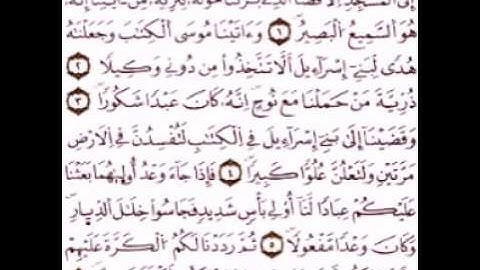 هُوَ السَّمِيعُ الْبَصِيرُ ١ وَءَاتَيْنَا مُوسَى الْكِتَٰبَ وَجَعَلْنَٰهُ
هُدًى لِّبَنِي إِسْرَٰٓءِيلَ أَلَّا تَتَّخِذُوا۟ مِن دُونِي وَكِيلًا ٢
ذُرِّيَّةَ مَنْ حَمَلْنَا مَعَ نُوحٍ إِنَّهُۥ كَانَ عَبْدًا شَكُورًا ٣
وَقَضَيْنَا إِلَىٰ بَنِي إِسْرَٰٓءِيلَ فِي الْكِتَٰبِ لَتُفْسِدُنَّ فِي الْأَرْضِ
مَرَّتَيْنِ وَلَتَعْلُنَّ عُلُوًّا كَبِيرًا ٤ فَإِذَا جَآءَ وَعْدُ أُولَىٰهُمَا بَعَثْنَا
عَلَيْكُمْ عِبَادًا لَّنَآ أُو۟لِي بَأْسٍ شَدِيدٍ فَجَاسُوا۟ خِلَٰلَ الدِّيَارِ
وَكَانَ وَعْدًا مَّفْعُولًا ٥ ثُمَّ رَدَدْنَا لَكُمُ الْكَرَّةَ عَلَيْهِمْ